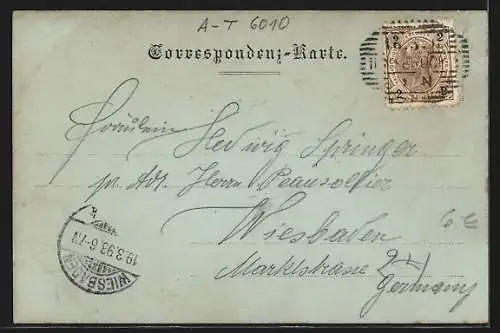 A-T 6010
Correspondenz-Karte.
Fräulein Hedwig Springer
p. Adr. Herrn Beausollier
Wiesbaden
Marktstrasse 21
Germany
6 €
WIESBADEN
19.3.93. 6-7N
2 2
2 2